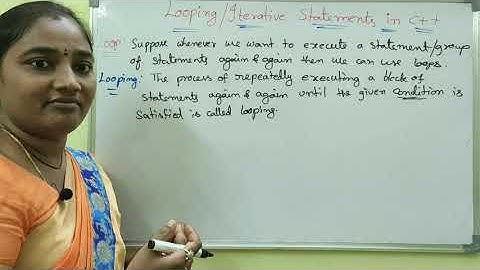 Looping/Iterative Statements in C++
Loop: Suppose whenever we want to execute a statement/group
of statements again & again then we can use loops.
Looping: The process of repeatedly executing a block of
statements again & again until the given condition is
satisfied is called looping.